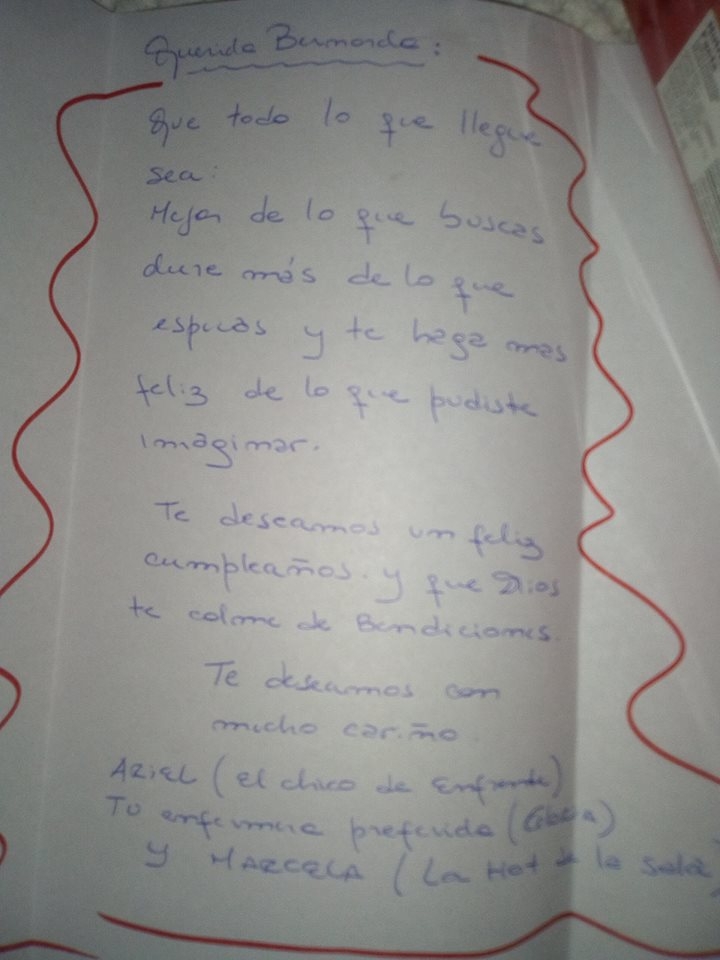 Querida Bermarda:
Que todo lo que llegue
sea:
Mejor de lo que buscas
dure más de lo que
esperas y te haga mas
feliz de lo que pudiste
imaginar.
Te deseamos un feliz
cumpleaños. y que Dios
te colme de Bendiciones.
Te deseamos con
mucho cariño.
ARIEL (el chico de Enfrente)
Tu enfermera preferida
y MARCELA (La Hot de la Sala)